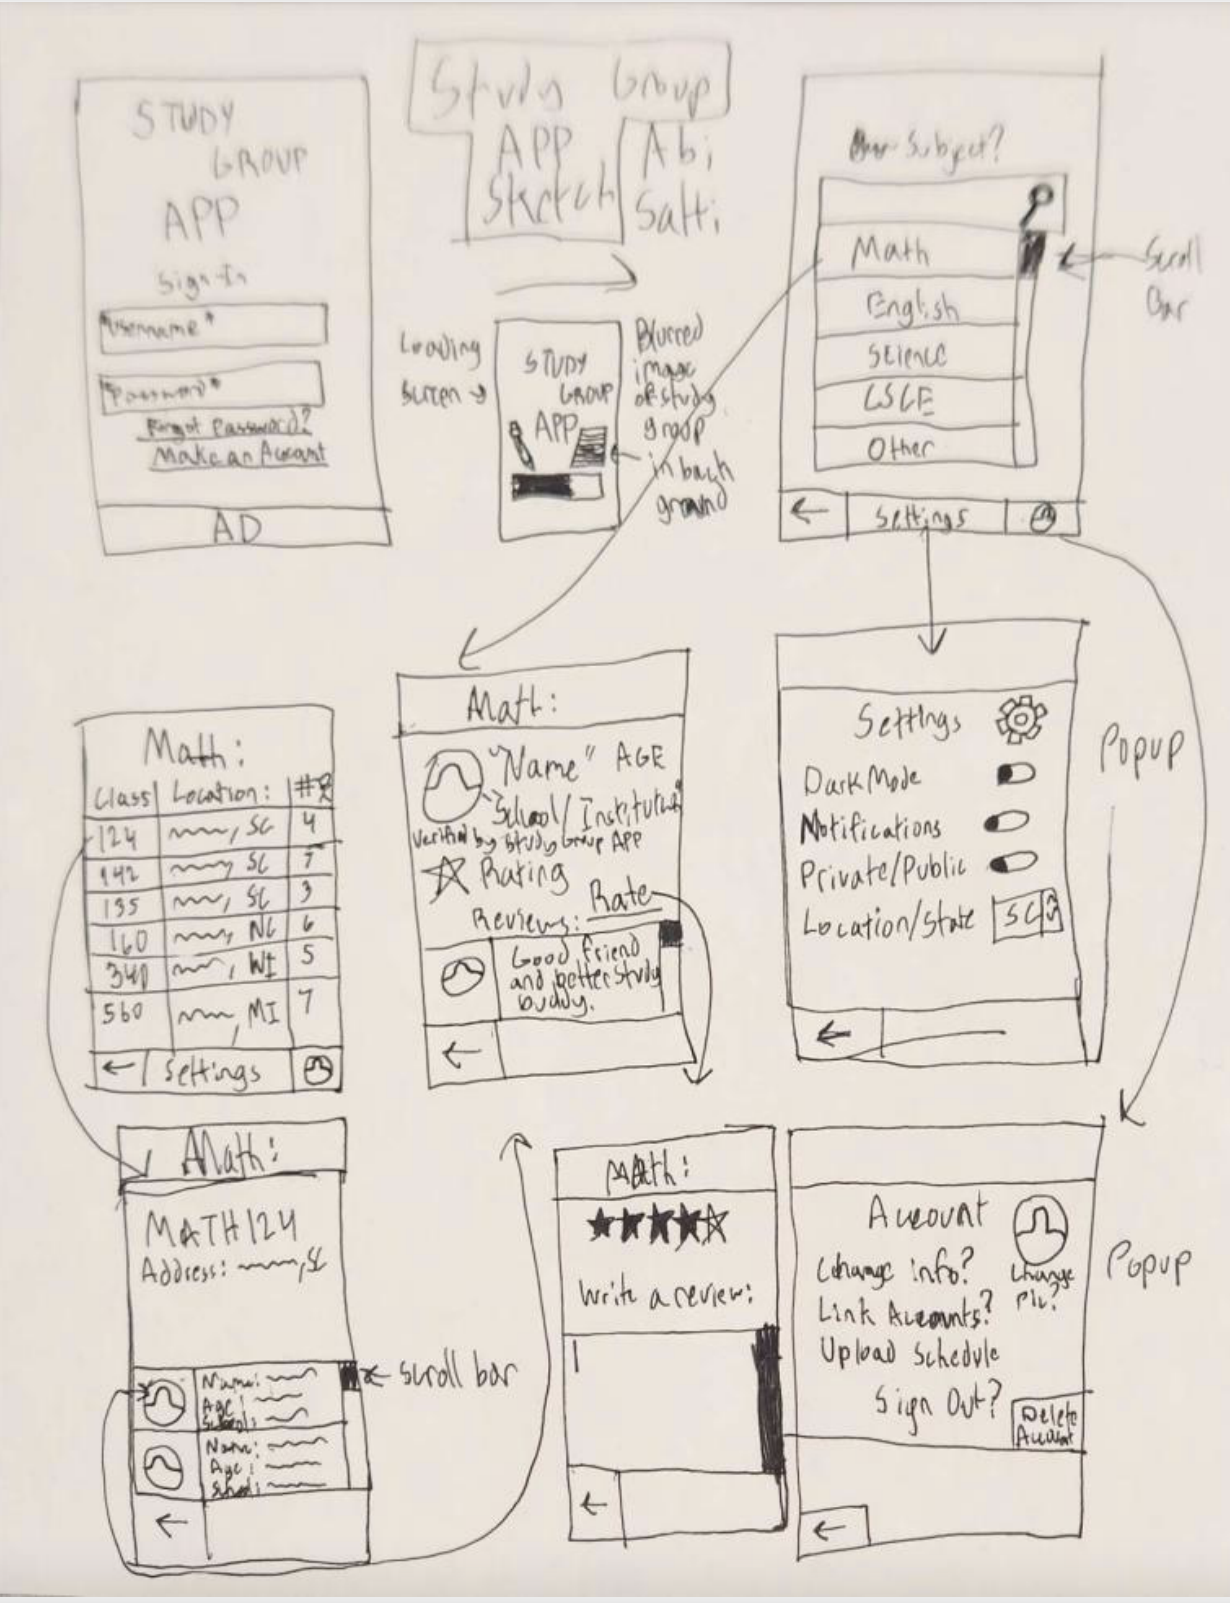 Study Group
APP
Sketch
Abi
Satti
STUDY
GROUP
APP
Sign-In
"Username"
"Password"
Forgot Password?
Make an Account
AD
Loading
Screen
STUDY
GROUP
APP
Blurred
image
of study
group
in back
ground
Subject?
Math
English
Science
CSCE
Other
Scroll
Bar
← Settings
Math:
Class Location: #
124 SC 4
142 SC
135 SC 3
160 NC 6
340 WI 5
560 MI 7
← Settings
Math:
"Name" AGE
School/Institution
Verified by Study Group APP
Rating
Rate
Reviews:
Good friend
and better study
buddy.
←
Settings
Dark Mode
Notifications
Private/Public
Location/State SC
←
Popup
Math:
MATH 124
Address: , SC
Name:
Age:
School:
Name:
Age:
School:
←
scroll bar
Math:
Write a review:
←
Account
Change info?
Change
Pic?
Link Accounts?
Upload Schedule
Sign Out?
Delete
Account
←
Popup